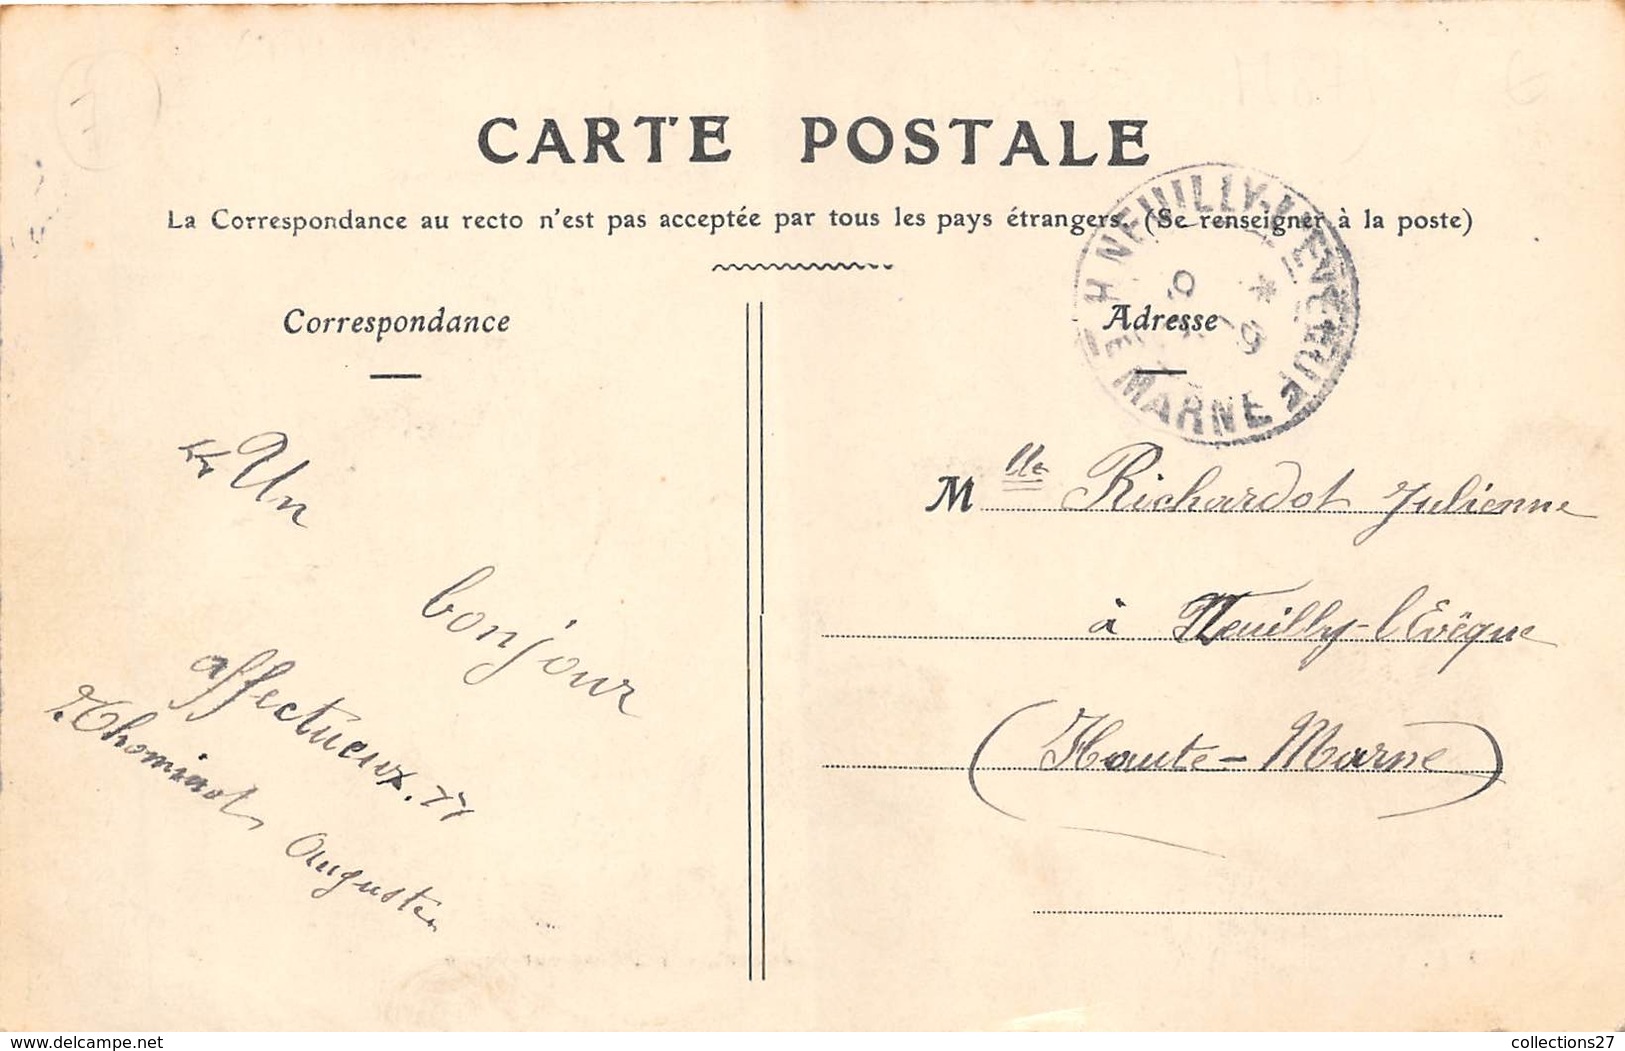 CARTE POSTALE
La Correspondance au recto n'est pas acceptée par tous les pays étrangers. (Se renseigner à la poste)
NEUILLY-L'EVÊQUE
HTE MARNE
Correspondance
Adresse
"Un
bonjour
affectueux."
Thominot
Auguste
Mlle Richardot Julienne
à Neuilly-l'Evêque
(Haute-Marne)
www.delcampe.net
collections27